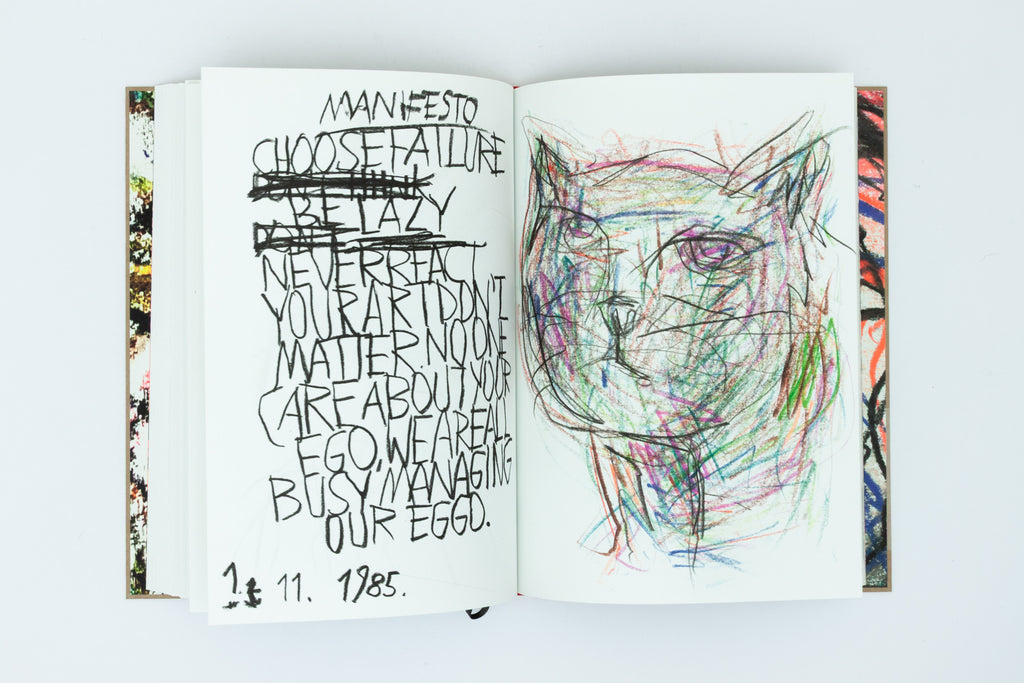 MANIFESTO
CHOOSE FAILURE
BE LAZY
NEVER REACT
YOUR ART DON'T
MATTER NO ONE
CARE ABOUT YOUR
EGO, WE ARE ALL
BUSY MANAGING
OUR EGGO.
1. 11. 1985.